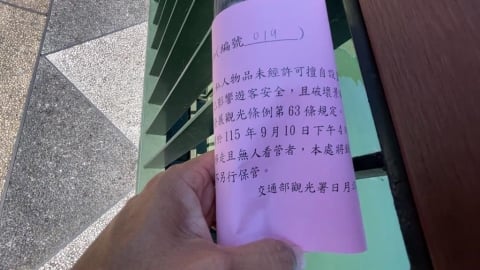 編號 014 )
私人物品未經許可擅自設
影響遊客安全,且破壞
展觀光條例第 63 條規定
於 115 年 9 月 10 日下午 4
走且無人看管者,本處將
另行保管。
交通部觀光署日月